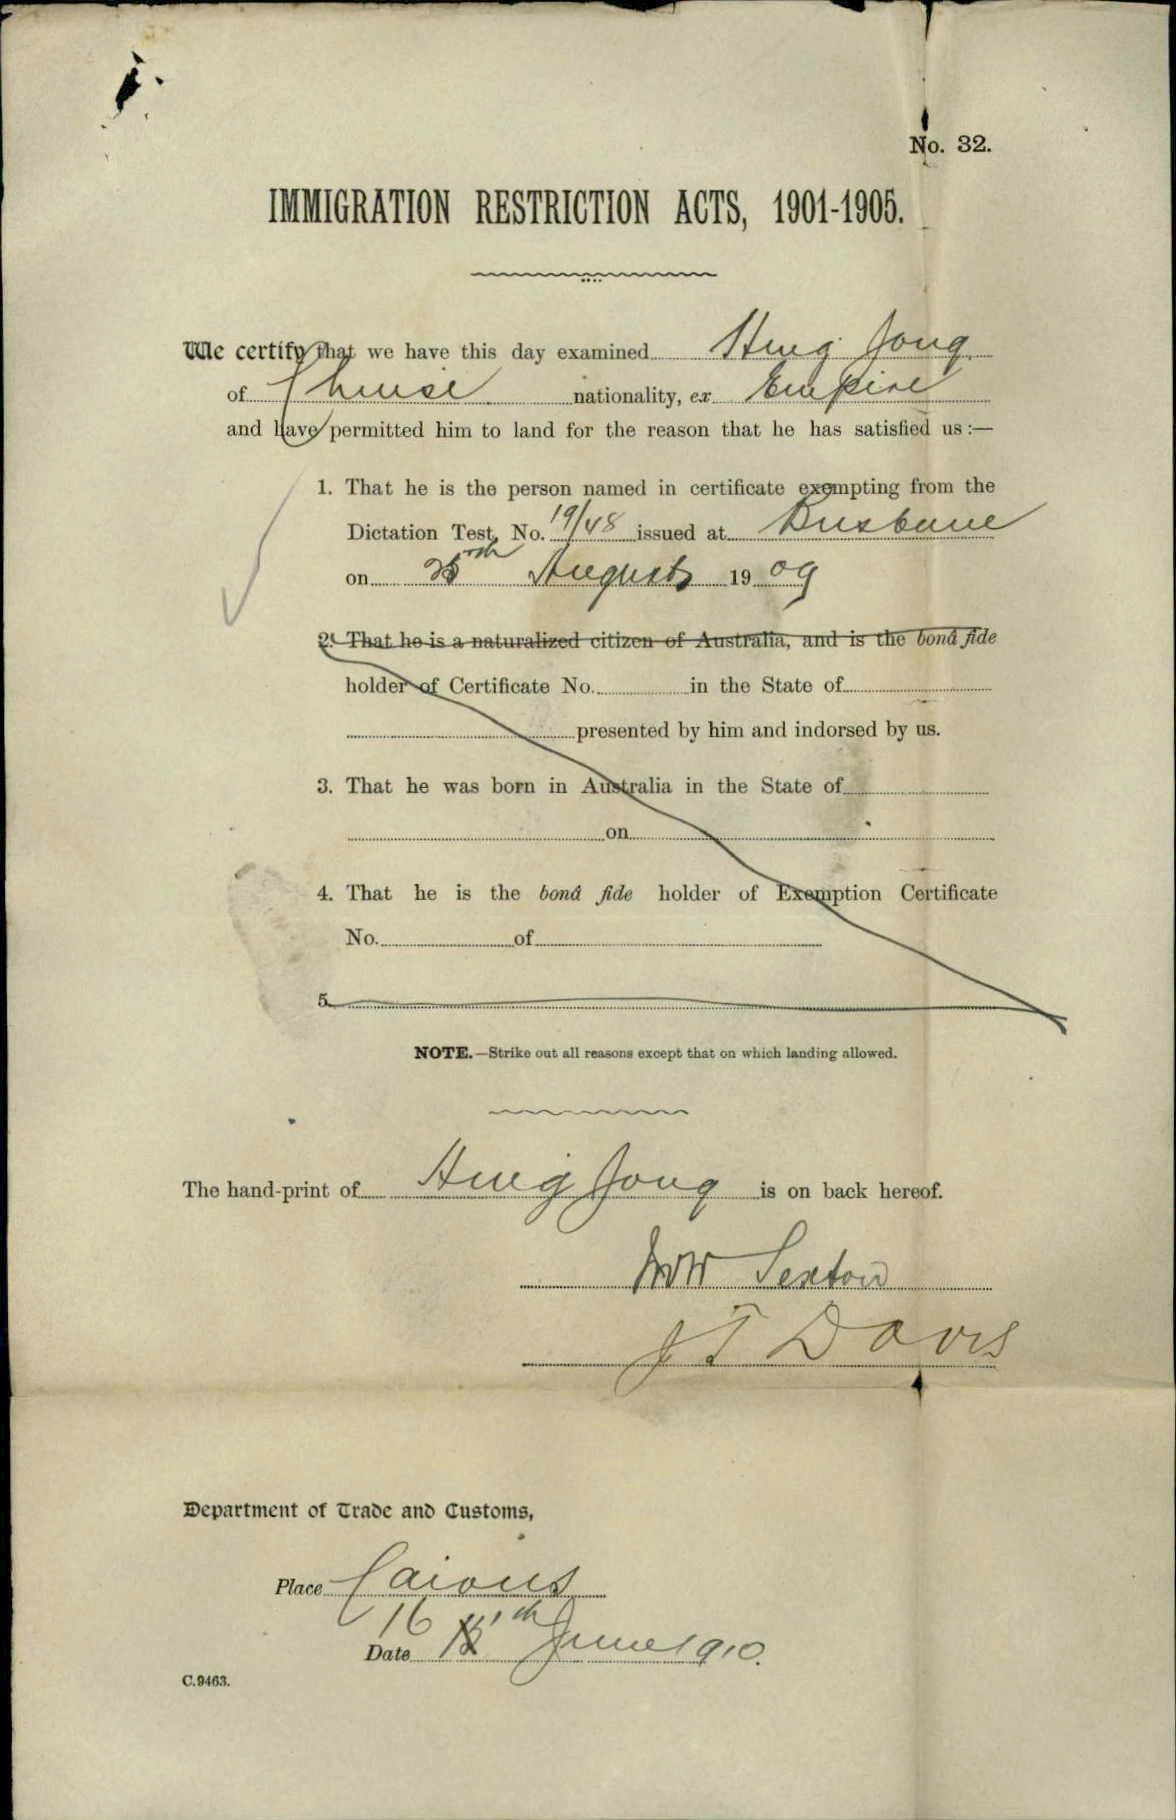 No. 32.
IMMIGRATION RESTRICTION ACTS, 1901-1905.
We certify that we have this day examined Hing Jong
of Chinese nationality, ex Empire
and have permitted him to land for the reason that he has satisfied us :—
1. That he is the person named in certificate exempting from the
Dictation Test, No. 19/48 issued at Brisbane
on 25th August 1909
2. That he is a naturalized citizen of Australia, and is the bonâ fide
holder of Certificate No. in the State of
presented by him and indorsed by us.
3. That he was born in Australia in the State of
on
4. That he is the bonâ fide holder of Exemption Certificate
No. of
5.
NOTE.—Strike out all reasons except that on which landing allowed.
The hand-print of Hing Jong is on back hereof.
Sexton
J T Davis
Department of Trade and Customs,
Place Cairns
16
Date th June 1910.
C.9463.